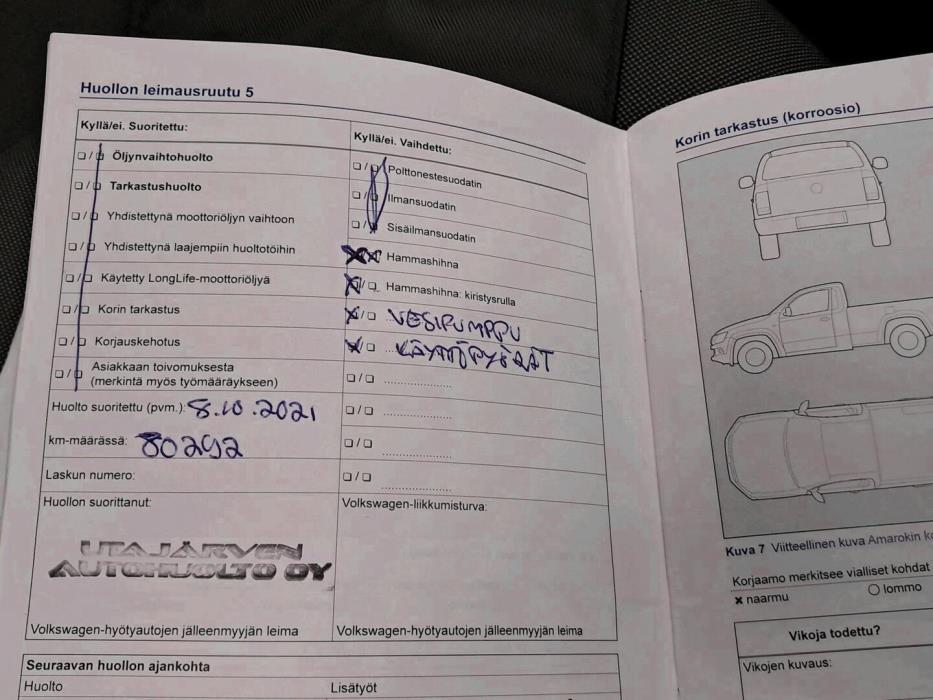 Huollon leimausruutu 5
Kyllä/ei. Suoritettu:
❏ / ❏ Öljynvaihtohuolto
❏ / ❏ Tarkastushuolto
❏ / ❏ Yhdistettynä moottoriöljyn vaihtoon
❏ / ❏ Yhdistettynä laajempiin huoltotöihin
❏ / ❏ Käytetty LongLife-moottoriöljyä
❏ / ❏ Korin tarkastus
❏ / ❏ Korjauskehotus
❏ / ❏ Asiakkaan toivomuksesta
(merkintä myös työmääräykseen)
Huolto suoritettu (pvm.): 8.10.2021
km-määrässä: 80292
Laskun numero:
Huollon suorittanut:
UTAJÄRVEN
AUTOHUOLTO OY
Volkswagen-hyötyautojen jälleenmyyjän leima
Kyllä/ei. Vaihdettu:
❏ / ❏ Polttonestesuodatin
❏ / ❏ Ilmansuodatin
❏ / ❏ Sisäilmansuodatin
Hammashihna
❏ / ❏ Hammashihna: kiristysrulla
❏ / ❏ VESIPUMPPU
❏ / ❏ KÄYTTÖPYÖRÄT
❏ / ❏ ....................
❏ / ❏ ....................
❏ / ❏ ....................
❏ / ❏ ....................
Volkswagen-liikkumisturva:
Volkswagen-hyötyautojen jälleenmyyjän leima
Seuraavan huollon ajankohta
Huolto Lisätyöt
Korin tarkastus (korroosio)
Kuva 7 Viitteellinen kuva Amarokin
Korjaamo merkitsee vialliset kohdat
✗ naarmu ○ lommo
Vikoja todettu?
Vikojen kuvaus: